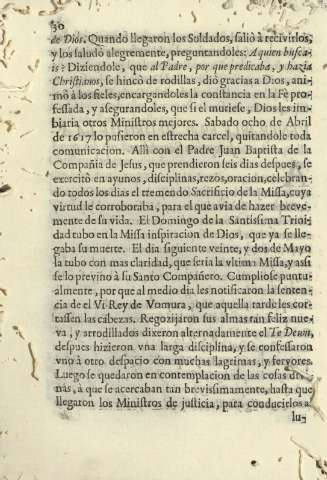 30
de Dios. Quando llegaron los Soldados, saliò à recivirlos,
y los saludò alegremente, preguntandoles: A quien busca-
is? Diziendole, que al Padre, por que predicaba, y hazia
Christianos, se hincò de rodillas, diò gracias a Dios, ani-
mò a los fieles, encargandoles la constancia en la Fè pro-
fessada, y asegurandoles, que si el muriese, Dios les im-
biaria otros Ministros mejores. Sabado ocho de Abril
de 1617 lo pusieron en estrecha carcel, quitandole toda
comunicacion. Alli con el Padre Juan Baptista de la
Compañia de Jesus, que prendieron seis dias despues, se
exercitò en ayunos, disciplinas, rezos, oracion, celebran-
do todos los dias el tremendo Sacrificio de la Missa, cuya
virtud le corroboraba, para el que avia de hazer breve-
mente de su vida. El Domingo de la Santissima Trini-
dad tubo en la Missa inspiracion de Dios, que ya se lle-
gaba su muerte. El dia siguiente veinte, y dos de Mayo
la tubo con mas claridad, que seria la vltima Missa, y assi
se lo previno à su Santo Compañero. Cumpliose puntu-
almente, por que al medio dia les notificaron la senten-
cia de el Vi-Rey de Vomura, que aquella tarde les cor-
tassen las cabezas. Regozijaron sus almas tan feliz nue-
va, y arrodillados dixeron alternadamente el Te Deum,
despues hizieron vna larga disciplina, y se confessaron
vno à otro despacio con muchas lagrimas, y fervores.
Luego se quedaron en contemplacion de las cosas divi-
nas, à que se acercaban tan brevissimamente, hasta que
llegaron los Ministros de justicia, para conducirlos a
lu-